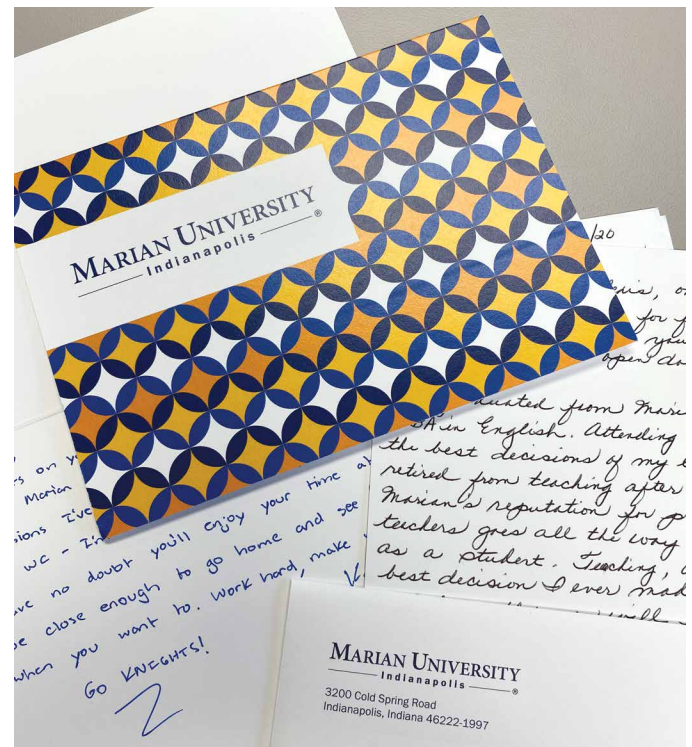 MARIAN UNIVERSITY
Indianapolis ®
/20
for
you
open
uated from Mari
BA in English. Attending
the best decisions of my
retired from teaching after
Marian's reputation for p
teachers goes all the way
as a student. Teaching,
best decision I ever mad
rs on y
Marian
sions I've
WC - I'm
ve no doubt you'll enjoy your time at
be close enough to go home and see
when you want to. Work hard, make
GO KNIGHTS!
MARIAN UNIVERSITY
Indianapolis ®
3200 Cold Spring Road
Indianapolis, Indiana 46222-1997